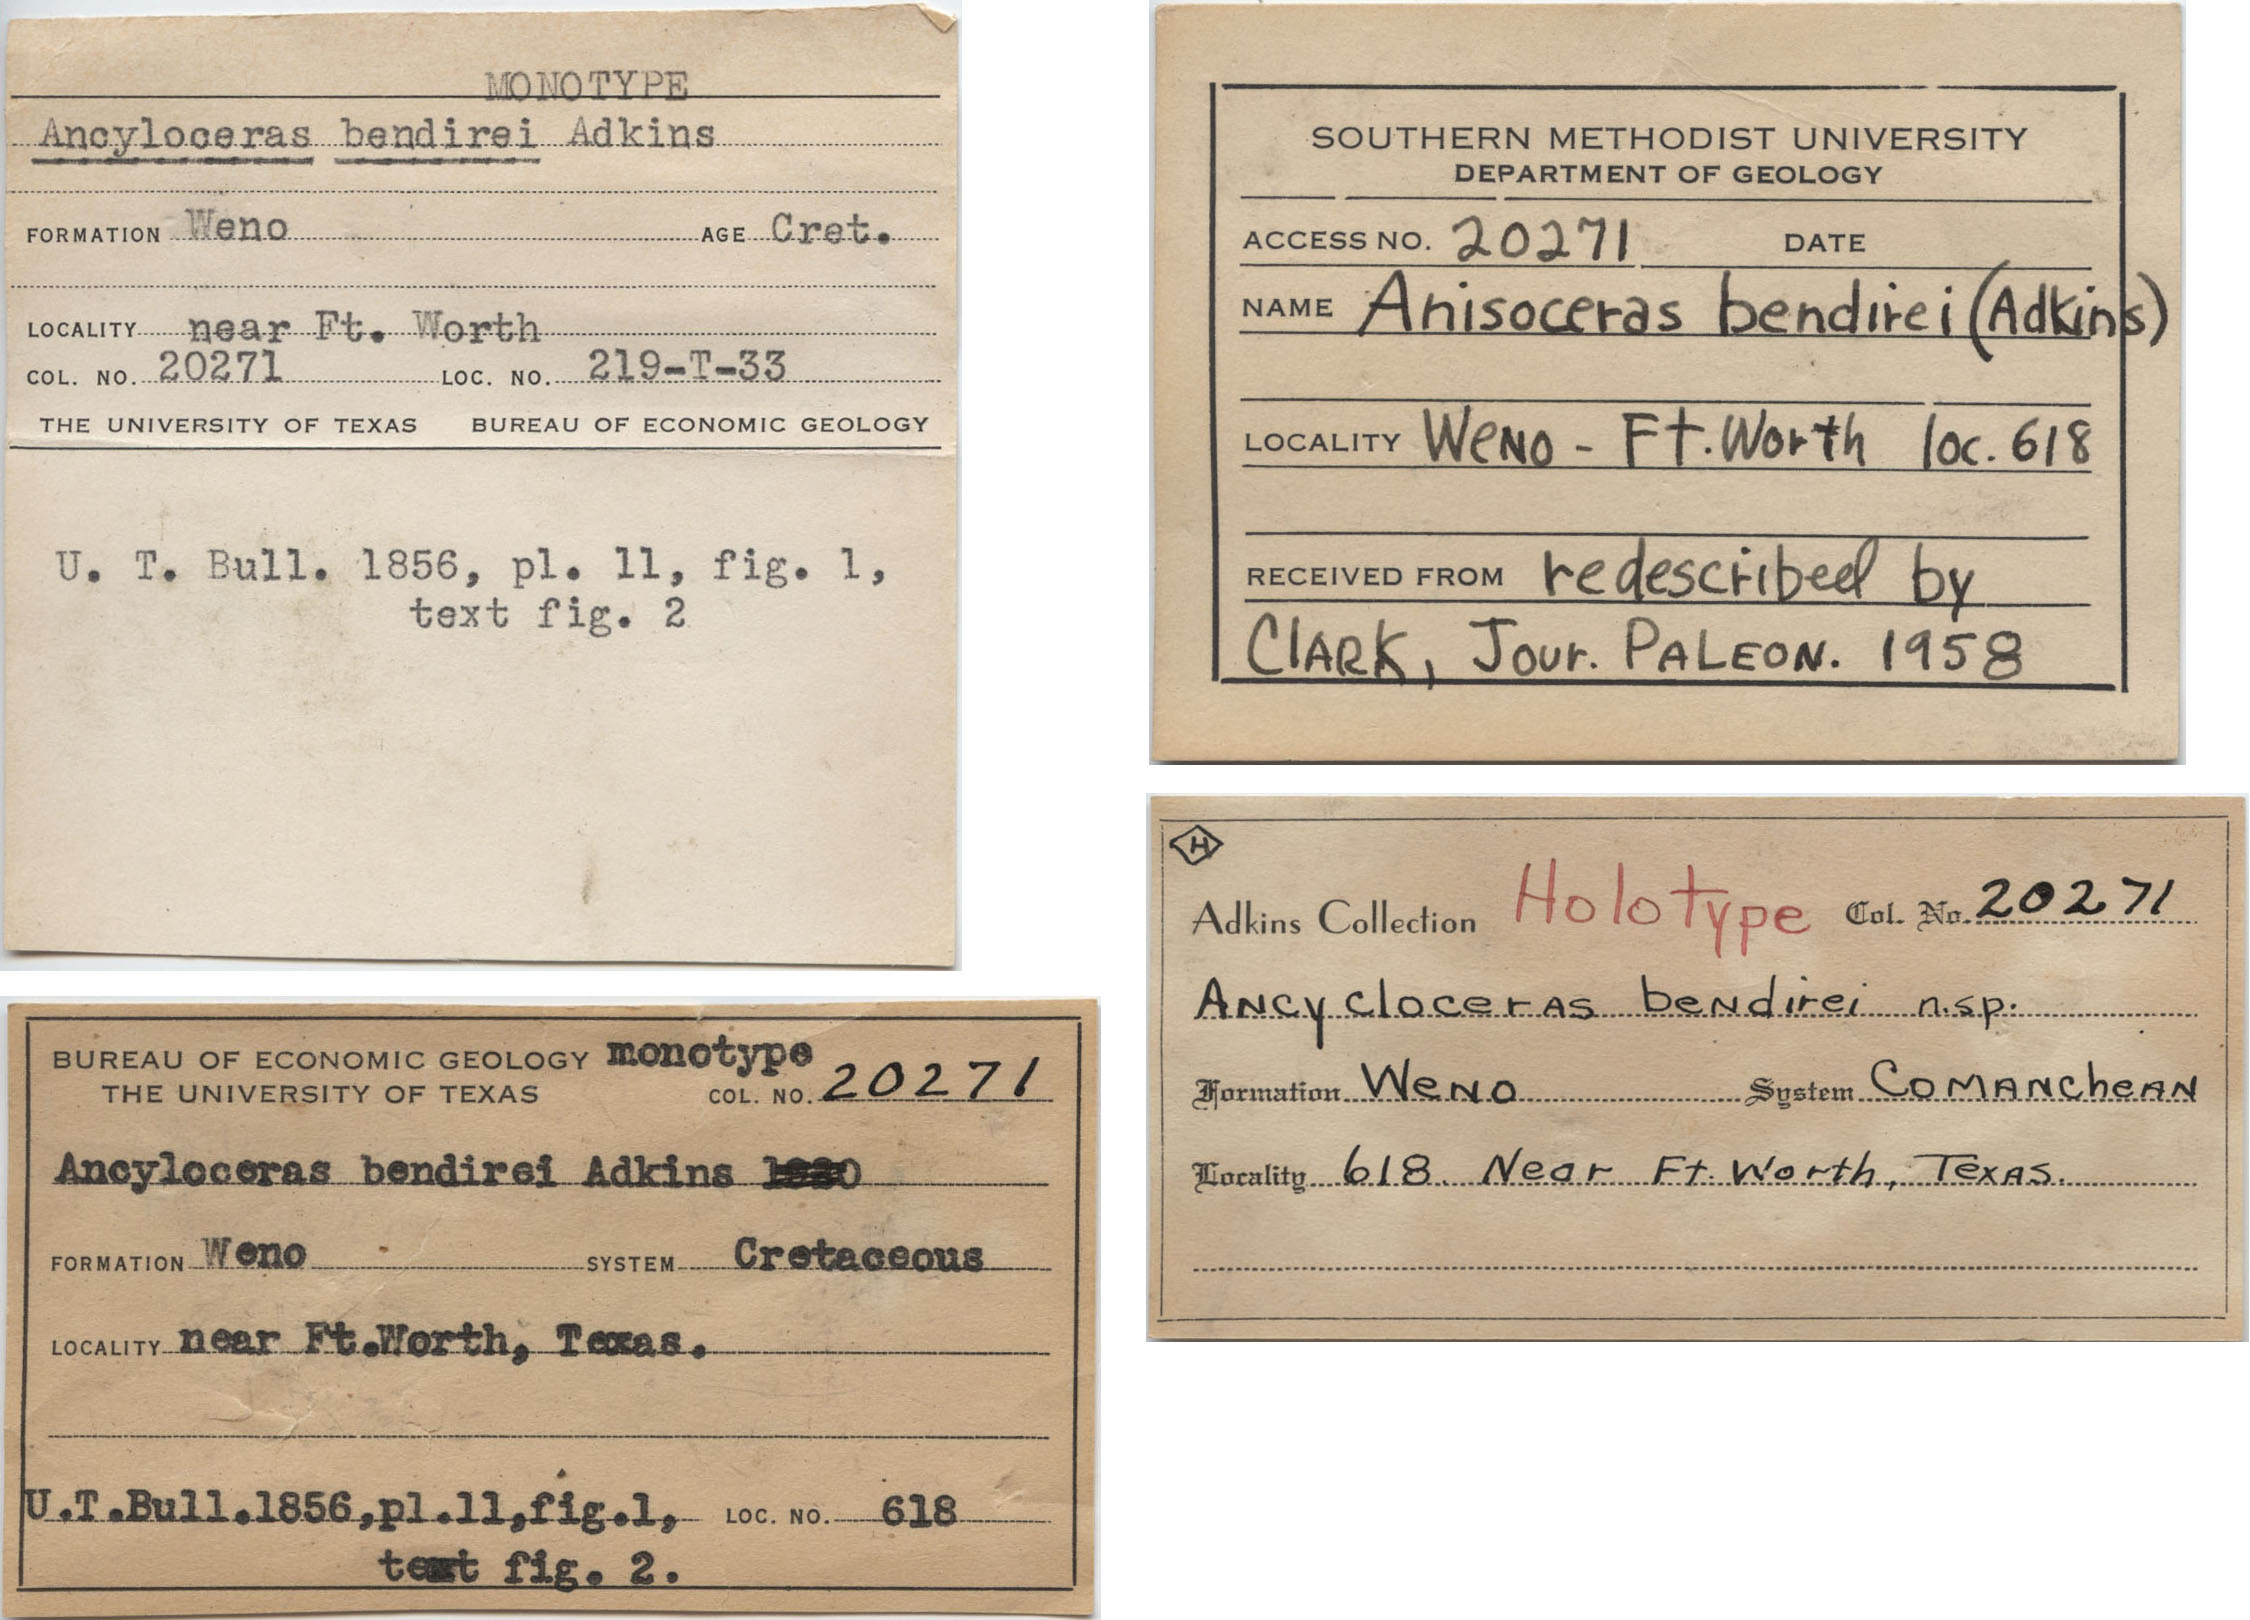 MONOTYPE
Ancyloceras bendirei Adkins
FORMATION Weno AGE Cret.
LOCALITY near Ft. Worth
COL. NO. 20271 LOC. NO. 219-T-33
THE UNIVERSITY OF TEXAS BUREAU OF ECONOMIC GEOLOGY
U. T. Bull. 1856, pl. 11, fig. 1,
text fig. 2
SOUTHERN METHODIST UNIVERSITY
DEPARTMENT OF GEOLOGY
ACCESS NO. 20271 DATE
NAME Anisoceras bendirei (Adkins)
LOCALITY WENO - Ft. Worth loc. 618
RECEIVED FROM redescribed by
CLARK, Jour. PALEON. 1958
BUREAU OF ECONOMIC GEOLOGY monotype
THE UNIVERSITY OF TEXAS COL. NO. 20271
Ancyloceras bendirei Adkins
FORMATION Weno SYSTEM Cretaceous
LOCALITY near Ft.Worth, Texas.
U.T.Bull.1856,pl.11,fig.1, LOC. NO. 618
text fig. 2.
H
Adkins Collection Holotype Col. No. 20271
ANCYCLOCERAS bendirei n.sp.
Formation WENO System COMANCHEAN
Locality 618 Near Ft. Worth, TEXAS.